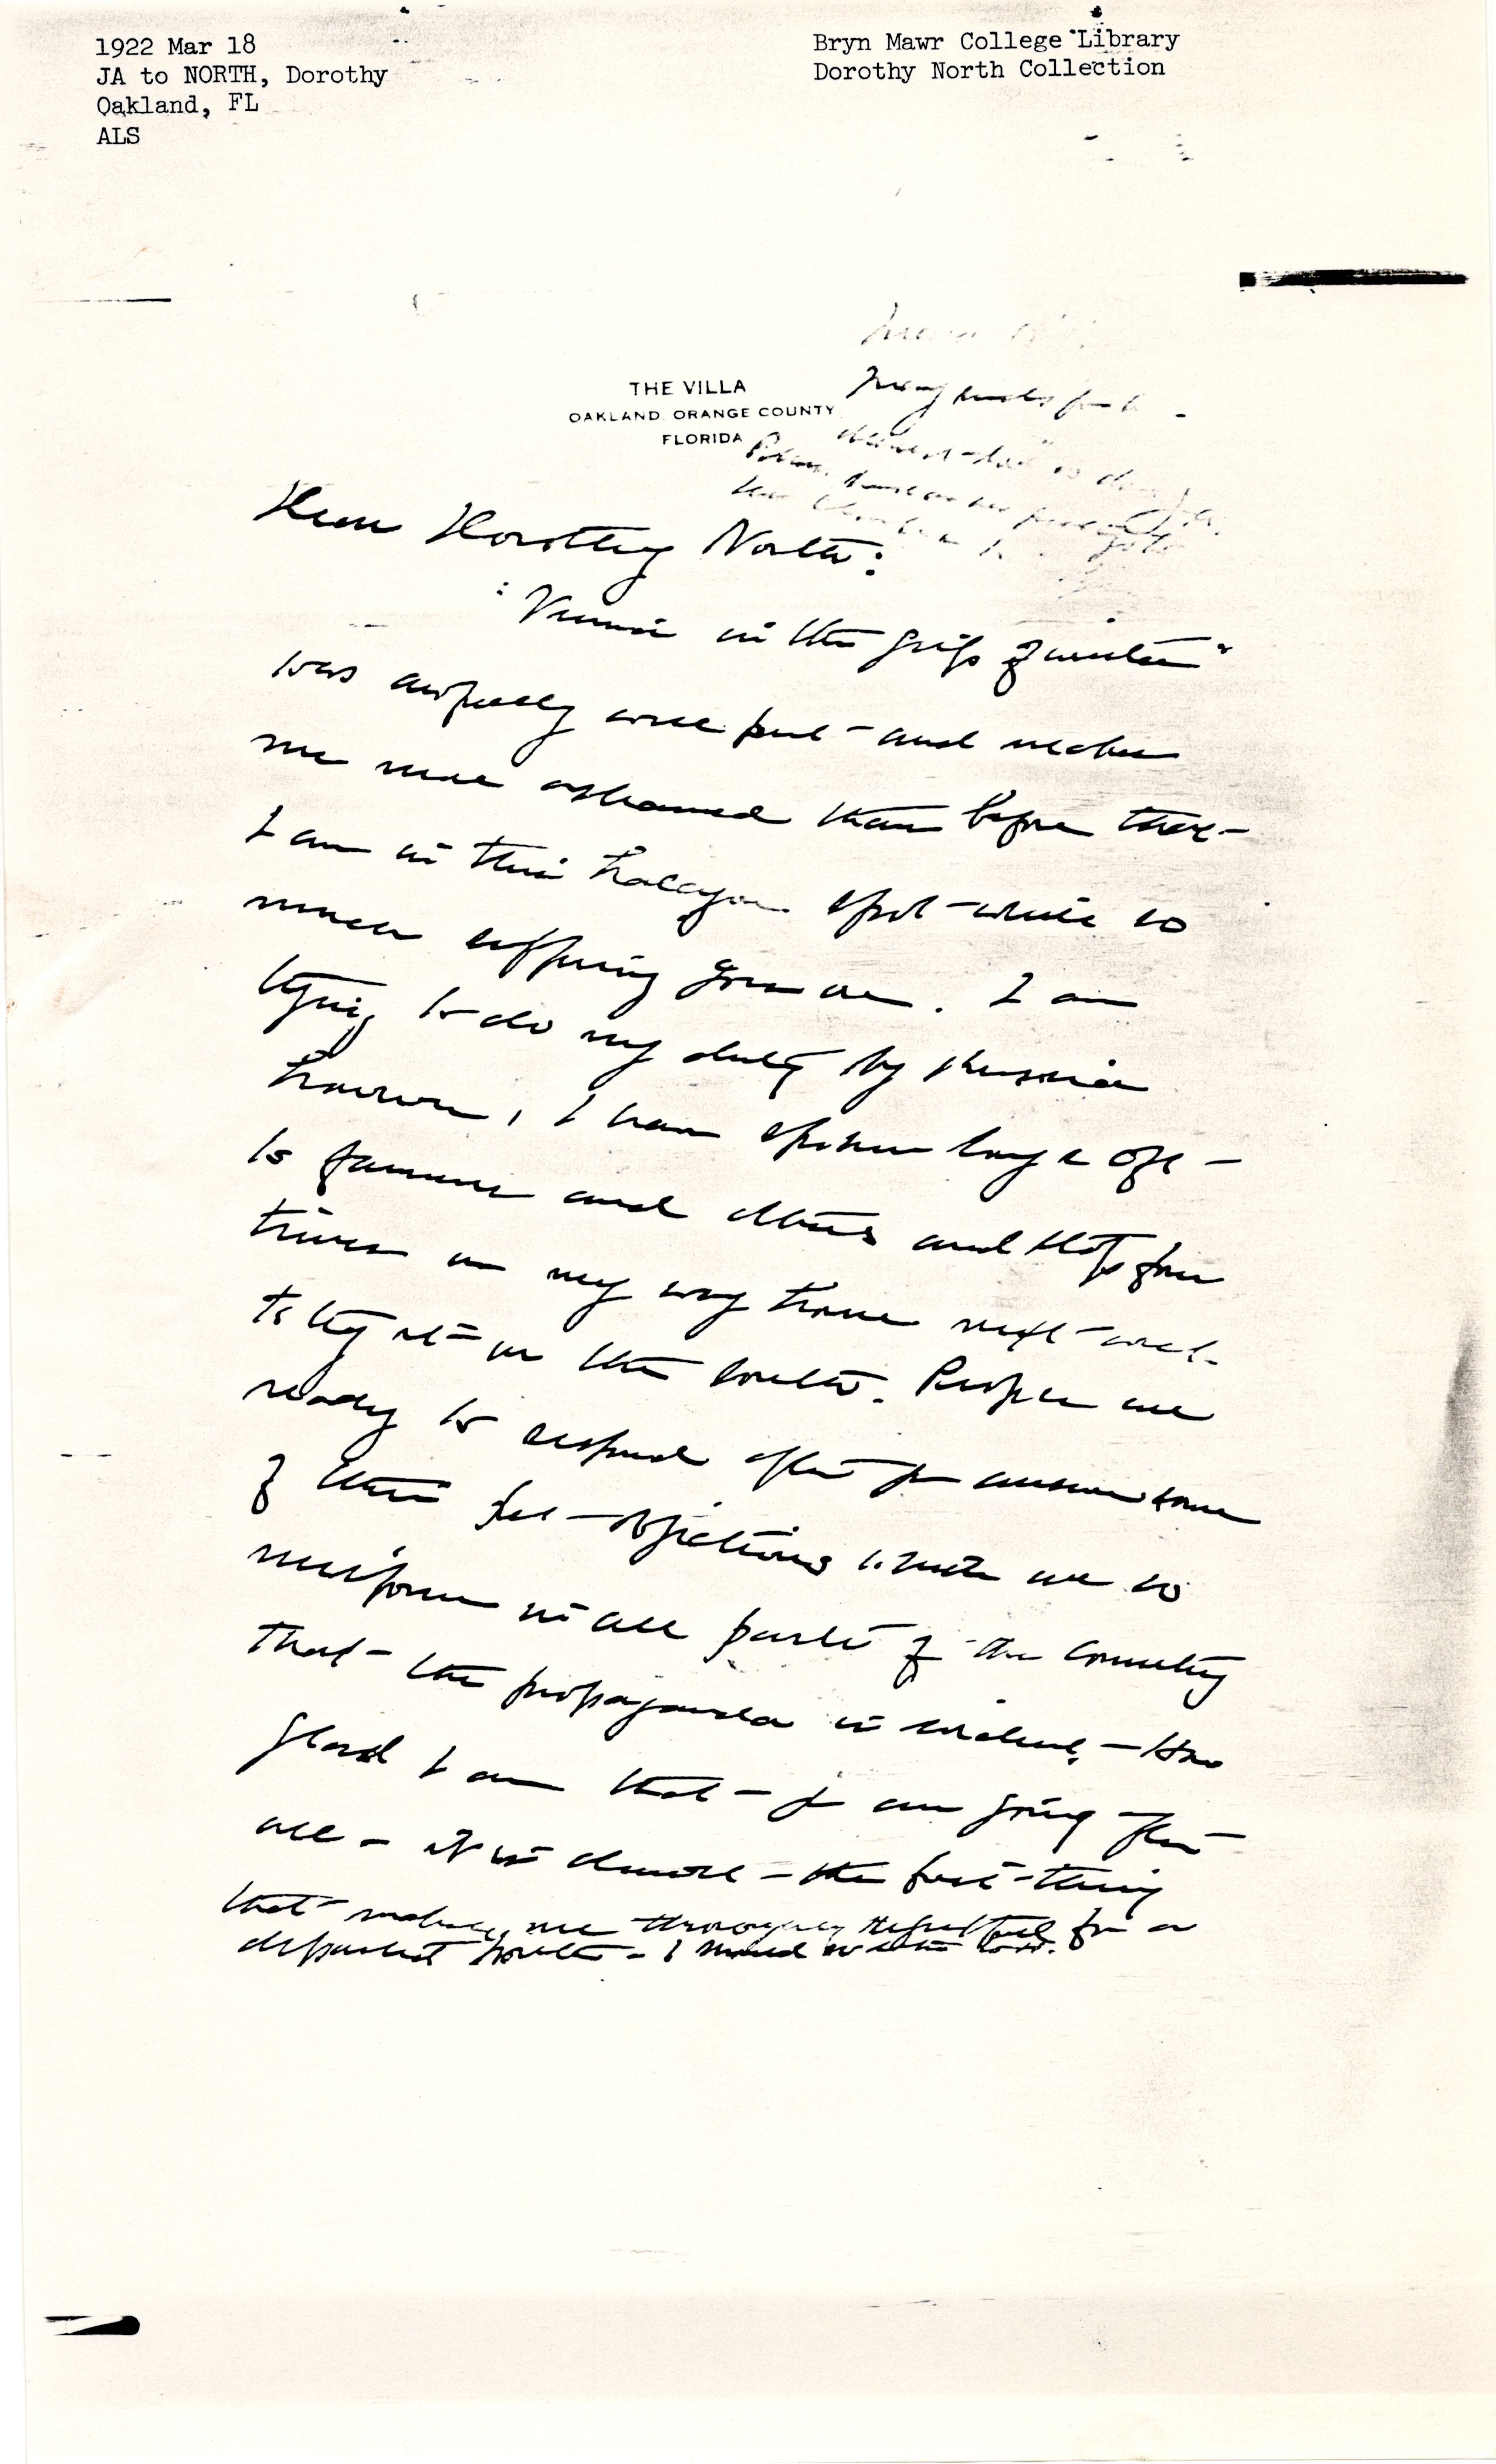 1922 Mar 18
JA to NORTH, Dorothy
Oakland, FL
ALS
Bryn Mawr College Library
Dorothy North Collection
THE VILLA
OAKLAND, ORANGE COUNTY
FLORIDA
Dear Dorothy North:
"Vienna in the grip of winter"
was awfully well put and makes
me more ashamed than before that
I am in this halcyon spot while so
much suffering goes on. I am
trying to do my duty by Russia
however, I have spoken large
to farmers and others and stop four
times on my way home next week
to try it in the South. People are
ready to respond after you answer some
of their objections which are so
uniform in all parts of the country
that the propaganda is evident. How
glad I am that you are going after
all - it is almost the first thing
that makes me thoroughly regretful for a
departed youth - I would so